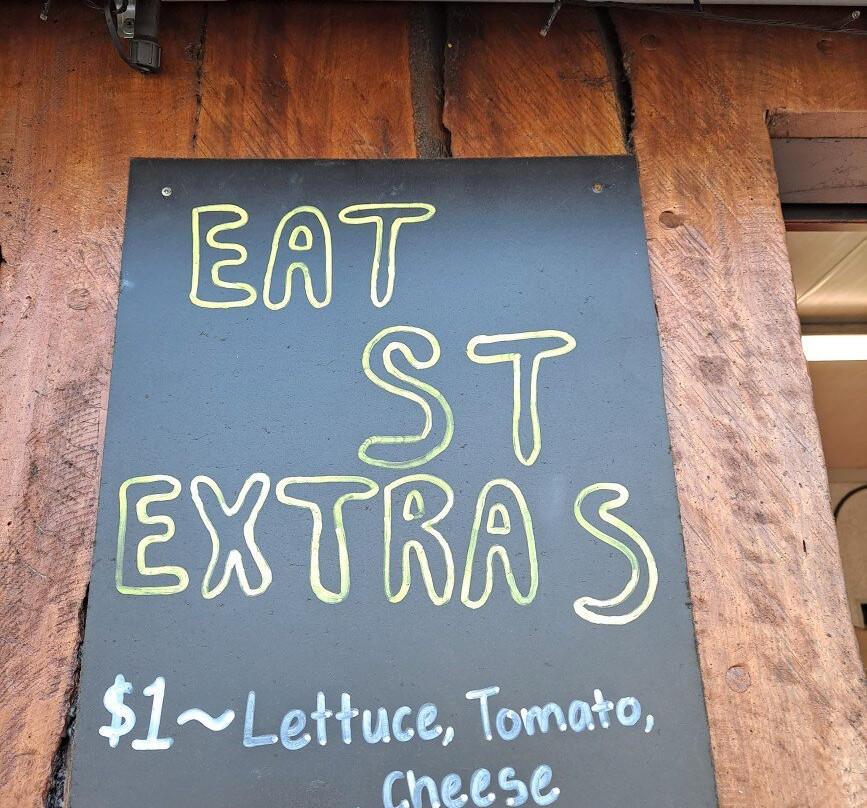 EAT
ST
EXTRAS
$1~Lettuce, Tomato,
Cheese